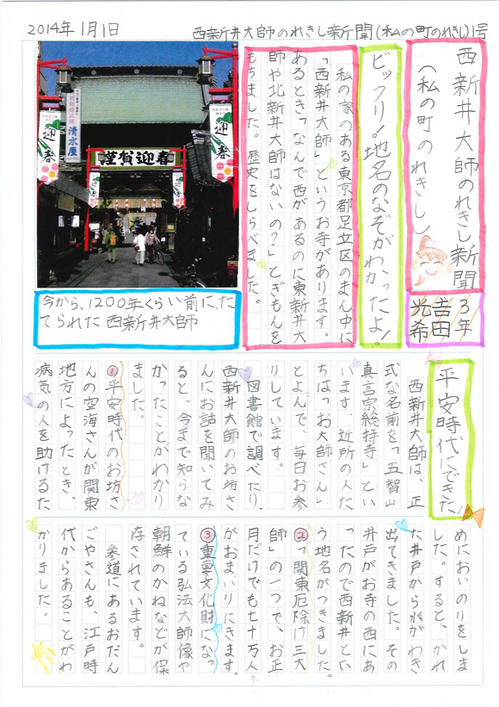 2014年1月1日
西新井大師のれきし新聞(私の町のれきし)1号
西新井大師のれきし新聞
(私の町のれきし)
3年
吉田
光希
ビックリ!地名のなぞがわかったよ!
私の家のある東京都足立区のまん中に
「西新井大師」というお寺があります。
あるとき「なんで西があるのに東新井大
師や北新井大師はないの?」とぎもんを
もちました。歴史をしらべました。
謹賀迎春
迎春
迎春
清水屋
今から、1200年くらい前に、た
てられた西新井大師
平安時代にできた
西新井大師は、正
式な名前を「五智山
真言宗総持寺」とい
います。近所の人た
ちは「お大師さん」
とよんで、毎日お参
りしています。
図書館で調べたり、
西新井大師のお坊さ
んにお話を聞いてみ
ると、今まで知らな
かったことがわかり
ました。
①平安時代のお坊さ
んの空海さんが関東
地方によったとき、
病気の人を助けるた
めにおいのりをしま
した。すると、かれ
た井戸から水がわき
出てきました。その
井戸がお寺の西にあ
ったので西新井とい
う地名がつきました。
②「関東厄除け三大
師」の一つで、お正
月だけでも七十万人
がおまいりにきます。
③重要文化財になっ
ている弘法大師像や
朝鮮のかねなどが保
存されています。
参道にあるおだん
ごやさんも、江戸時
代からあることがわ
かりました。